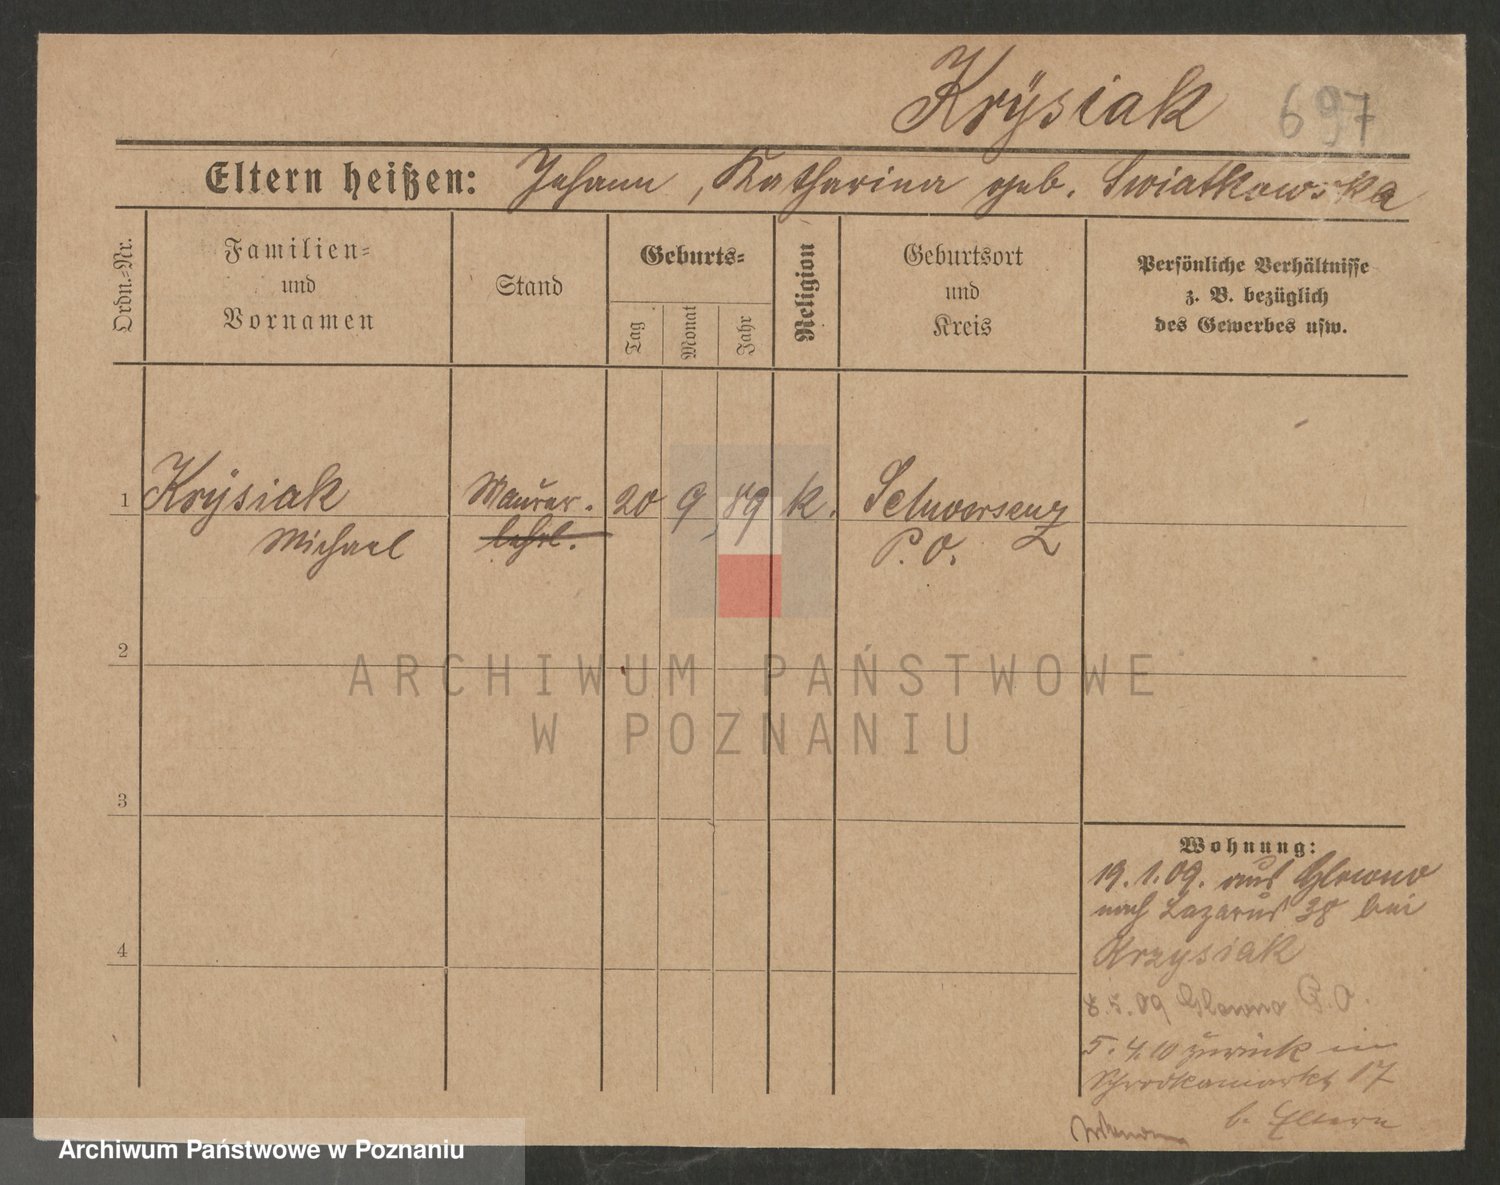 Krÿsiak 697
Eltern heißen: Johann, Katharina geb. Swiatkowska
Ordn.-Nr.
Familien-
und
Vornamen
Stand
Geburts-
Tag
Monat
Jahr
Religion
Geburtsort
und
Kreis
Persönliche Verhältnisse
z. B. bezüglich
des Gewerbes usw.
1 Krÿsiak Maurer. 20 9 89 k. Schwersenz
Michael lehrl. P. O.
2
3
4
Wohnung:
19.1.09. aus Glowno
nach Lazarus 38 bei
Krzysiak
8.5.09 Glowno P.O.
5.4.10 zurück in
Schrodkamarkt 17
b. Eltern
ARCHIWUM PAŃSTWOWE
W POZNANIU
Archiwum Państwowe w Poznaniu